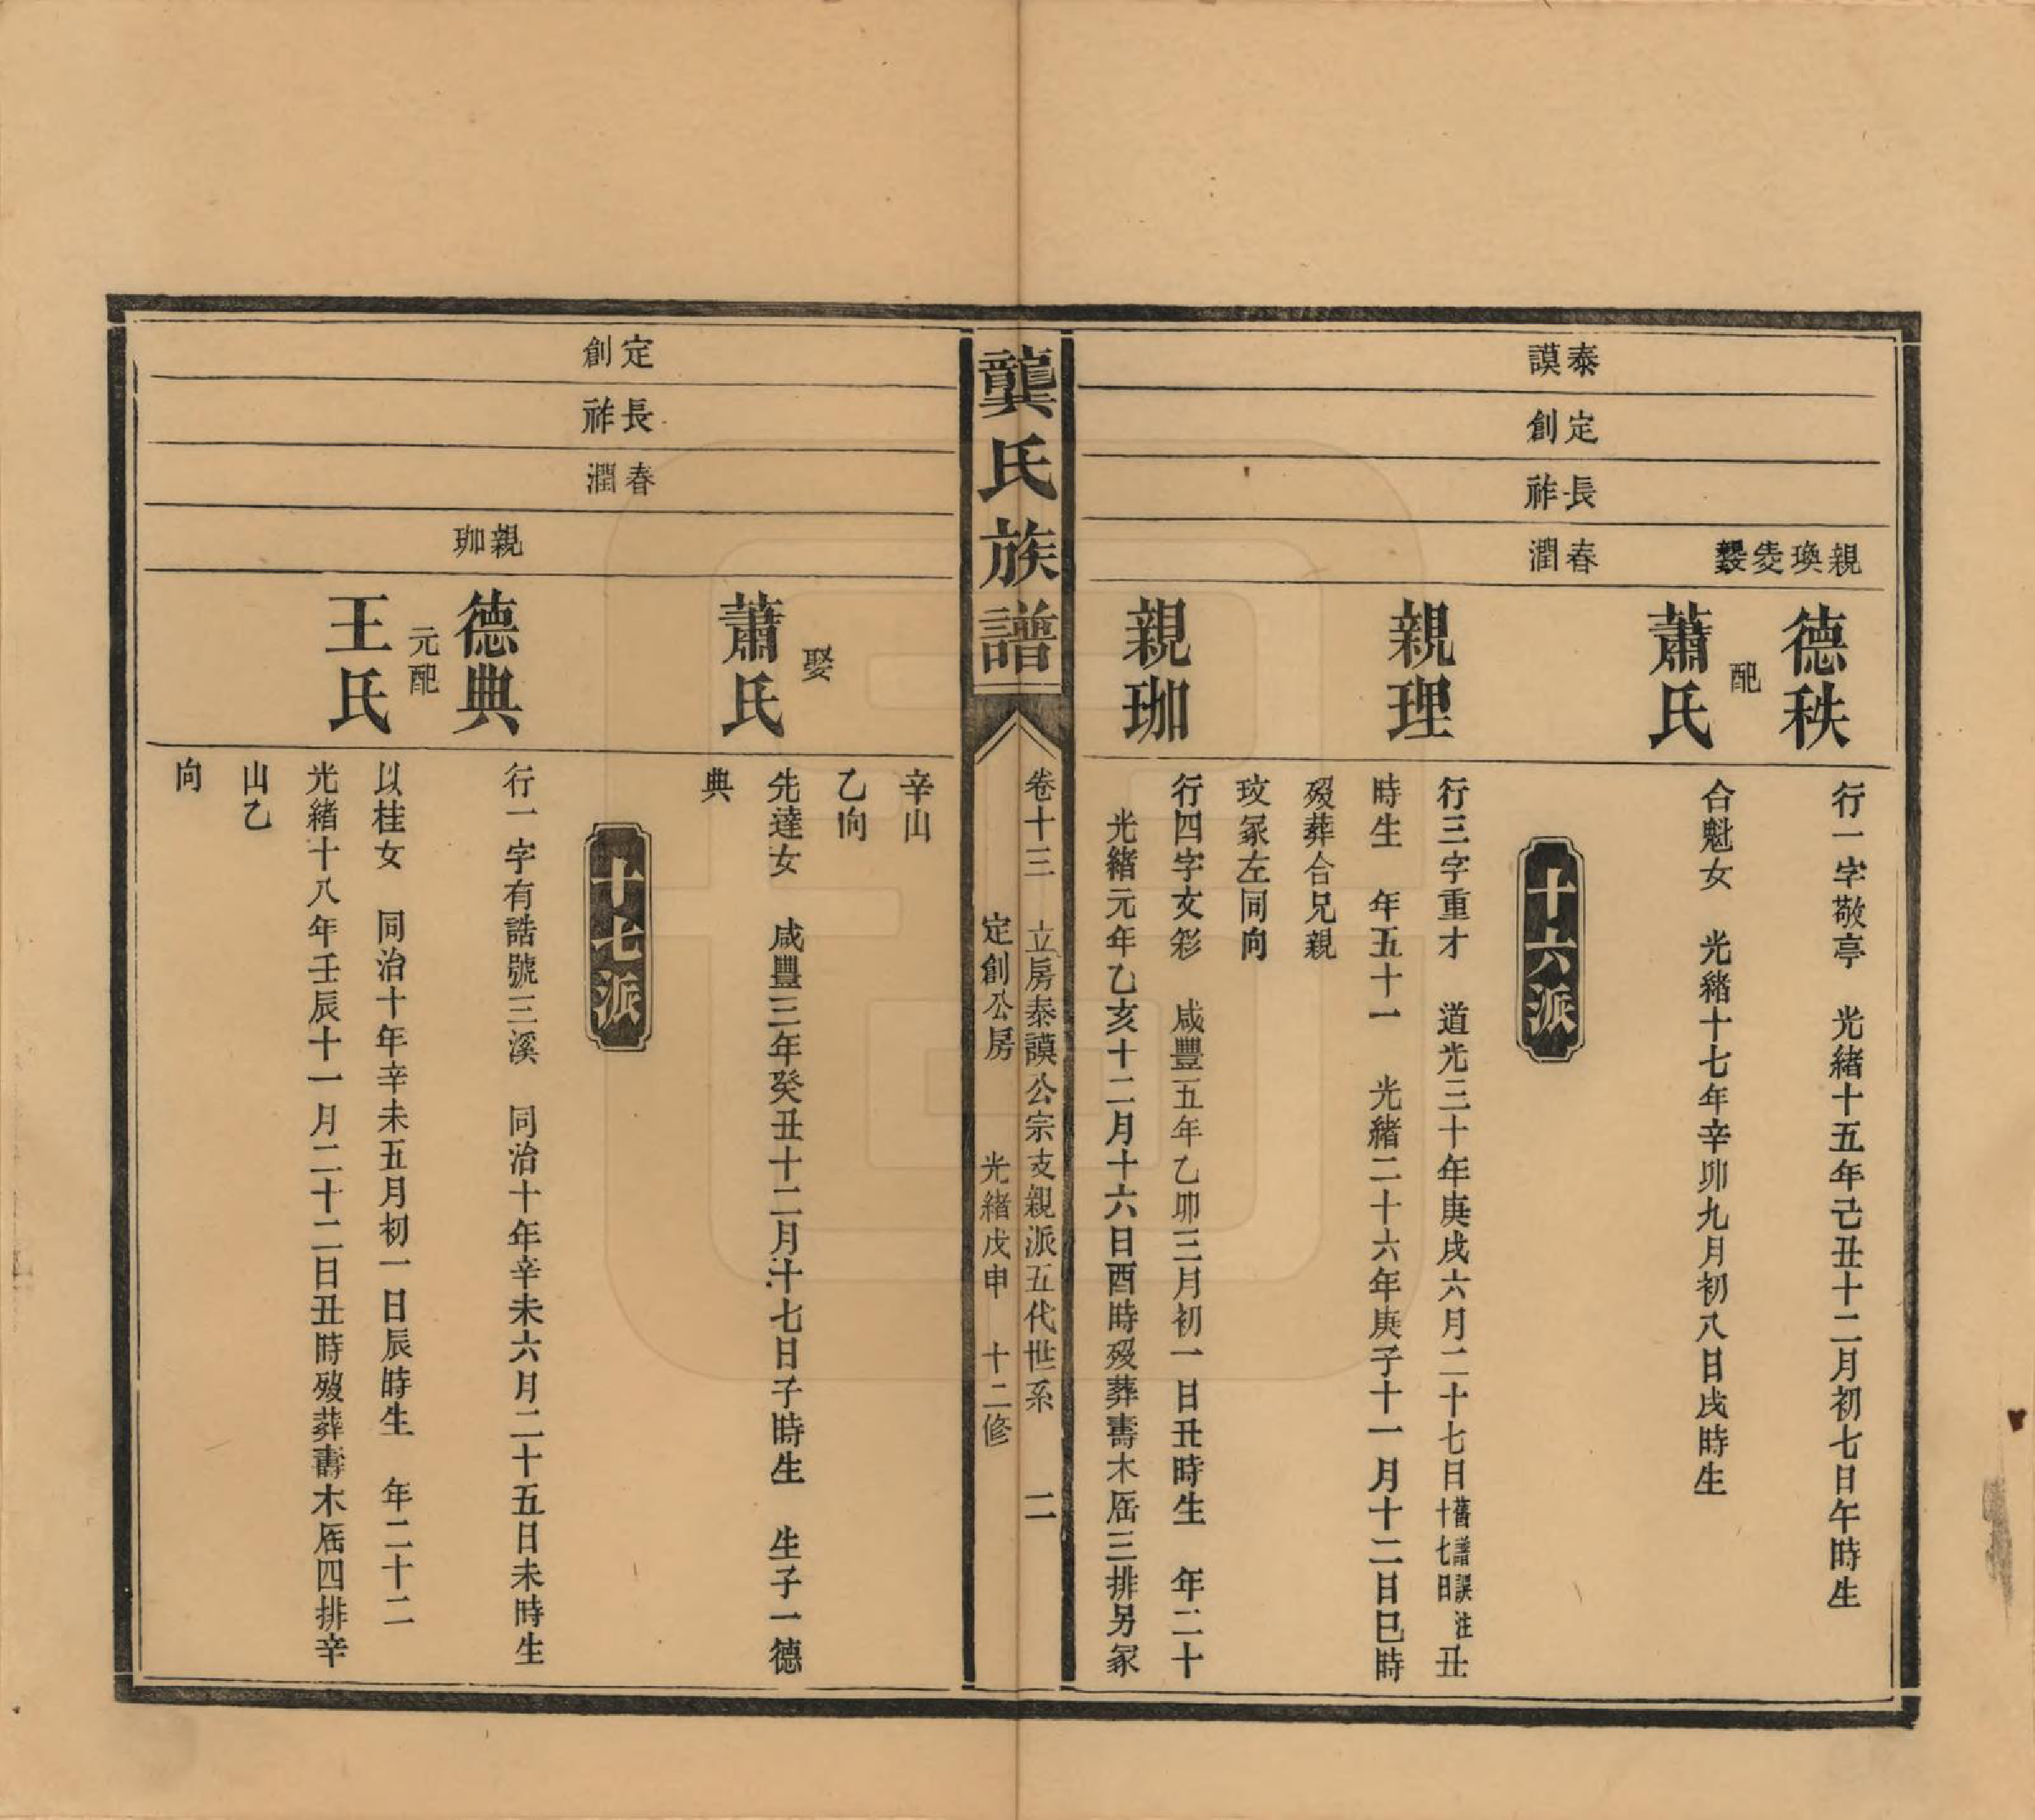 親瑛娑毲
德秩
行一字敬亭　光緒十五年己丑十二月初七日午時生
配
蕭氏
合魁女　光緒十七年辛卯九月初八日戌時生
泰謨
定創
長祚
春潤
十六派
親理
行三字重才　道光三十年庚戌六月二十七日舊譜誤注十七日丑
時生　年五十一　光緒二十六年庚子十一月十二日巳時
歿葬合兄親
玟冢左同向
親珈
行四字文彩　咸豐五年乙卯三月初一日丑時生　年二十
光緒元年乙亥十二月十六日酉時歿葬壽木㕓三排另冢
龔氏族譜
卷十三　立房泰謨公宗支親派五代世系　二
定創公房　光緒戊申　十二修
辛山
乙向
娶
蕭氏
先達女　咸豐三年癸丑十二月十七日子時生　生子一德
典
定創
長祚
春潤
十七派
親珈
德典
行一字有誥號三溪　同治十年辛未六月二十五日未時生
元配
王氏
以桂女　同治十年辛未五月初一日辰時生　年二十二
光緒十八年壬辰十一月二十二日丑時歿葬壽木㕓四排辛
山乙
向